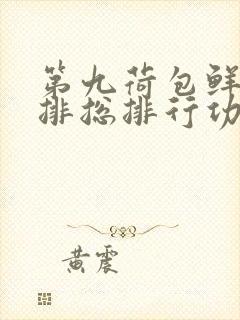 第九荷包鲜
排总排行功
黄震